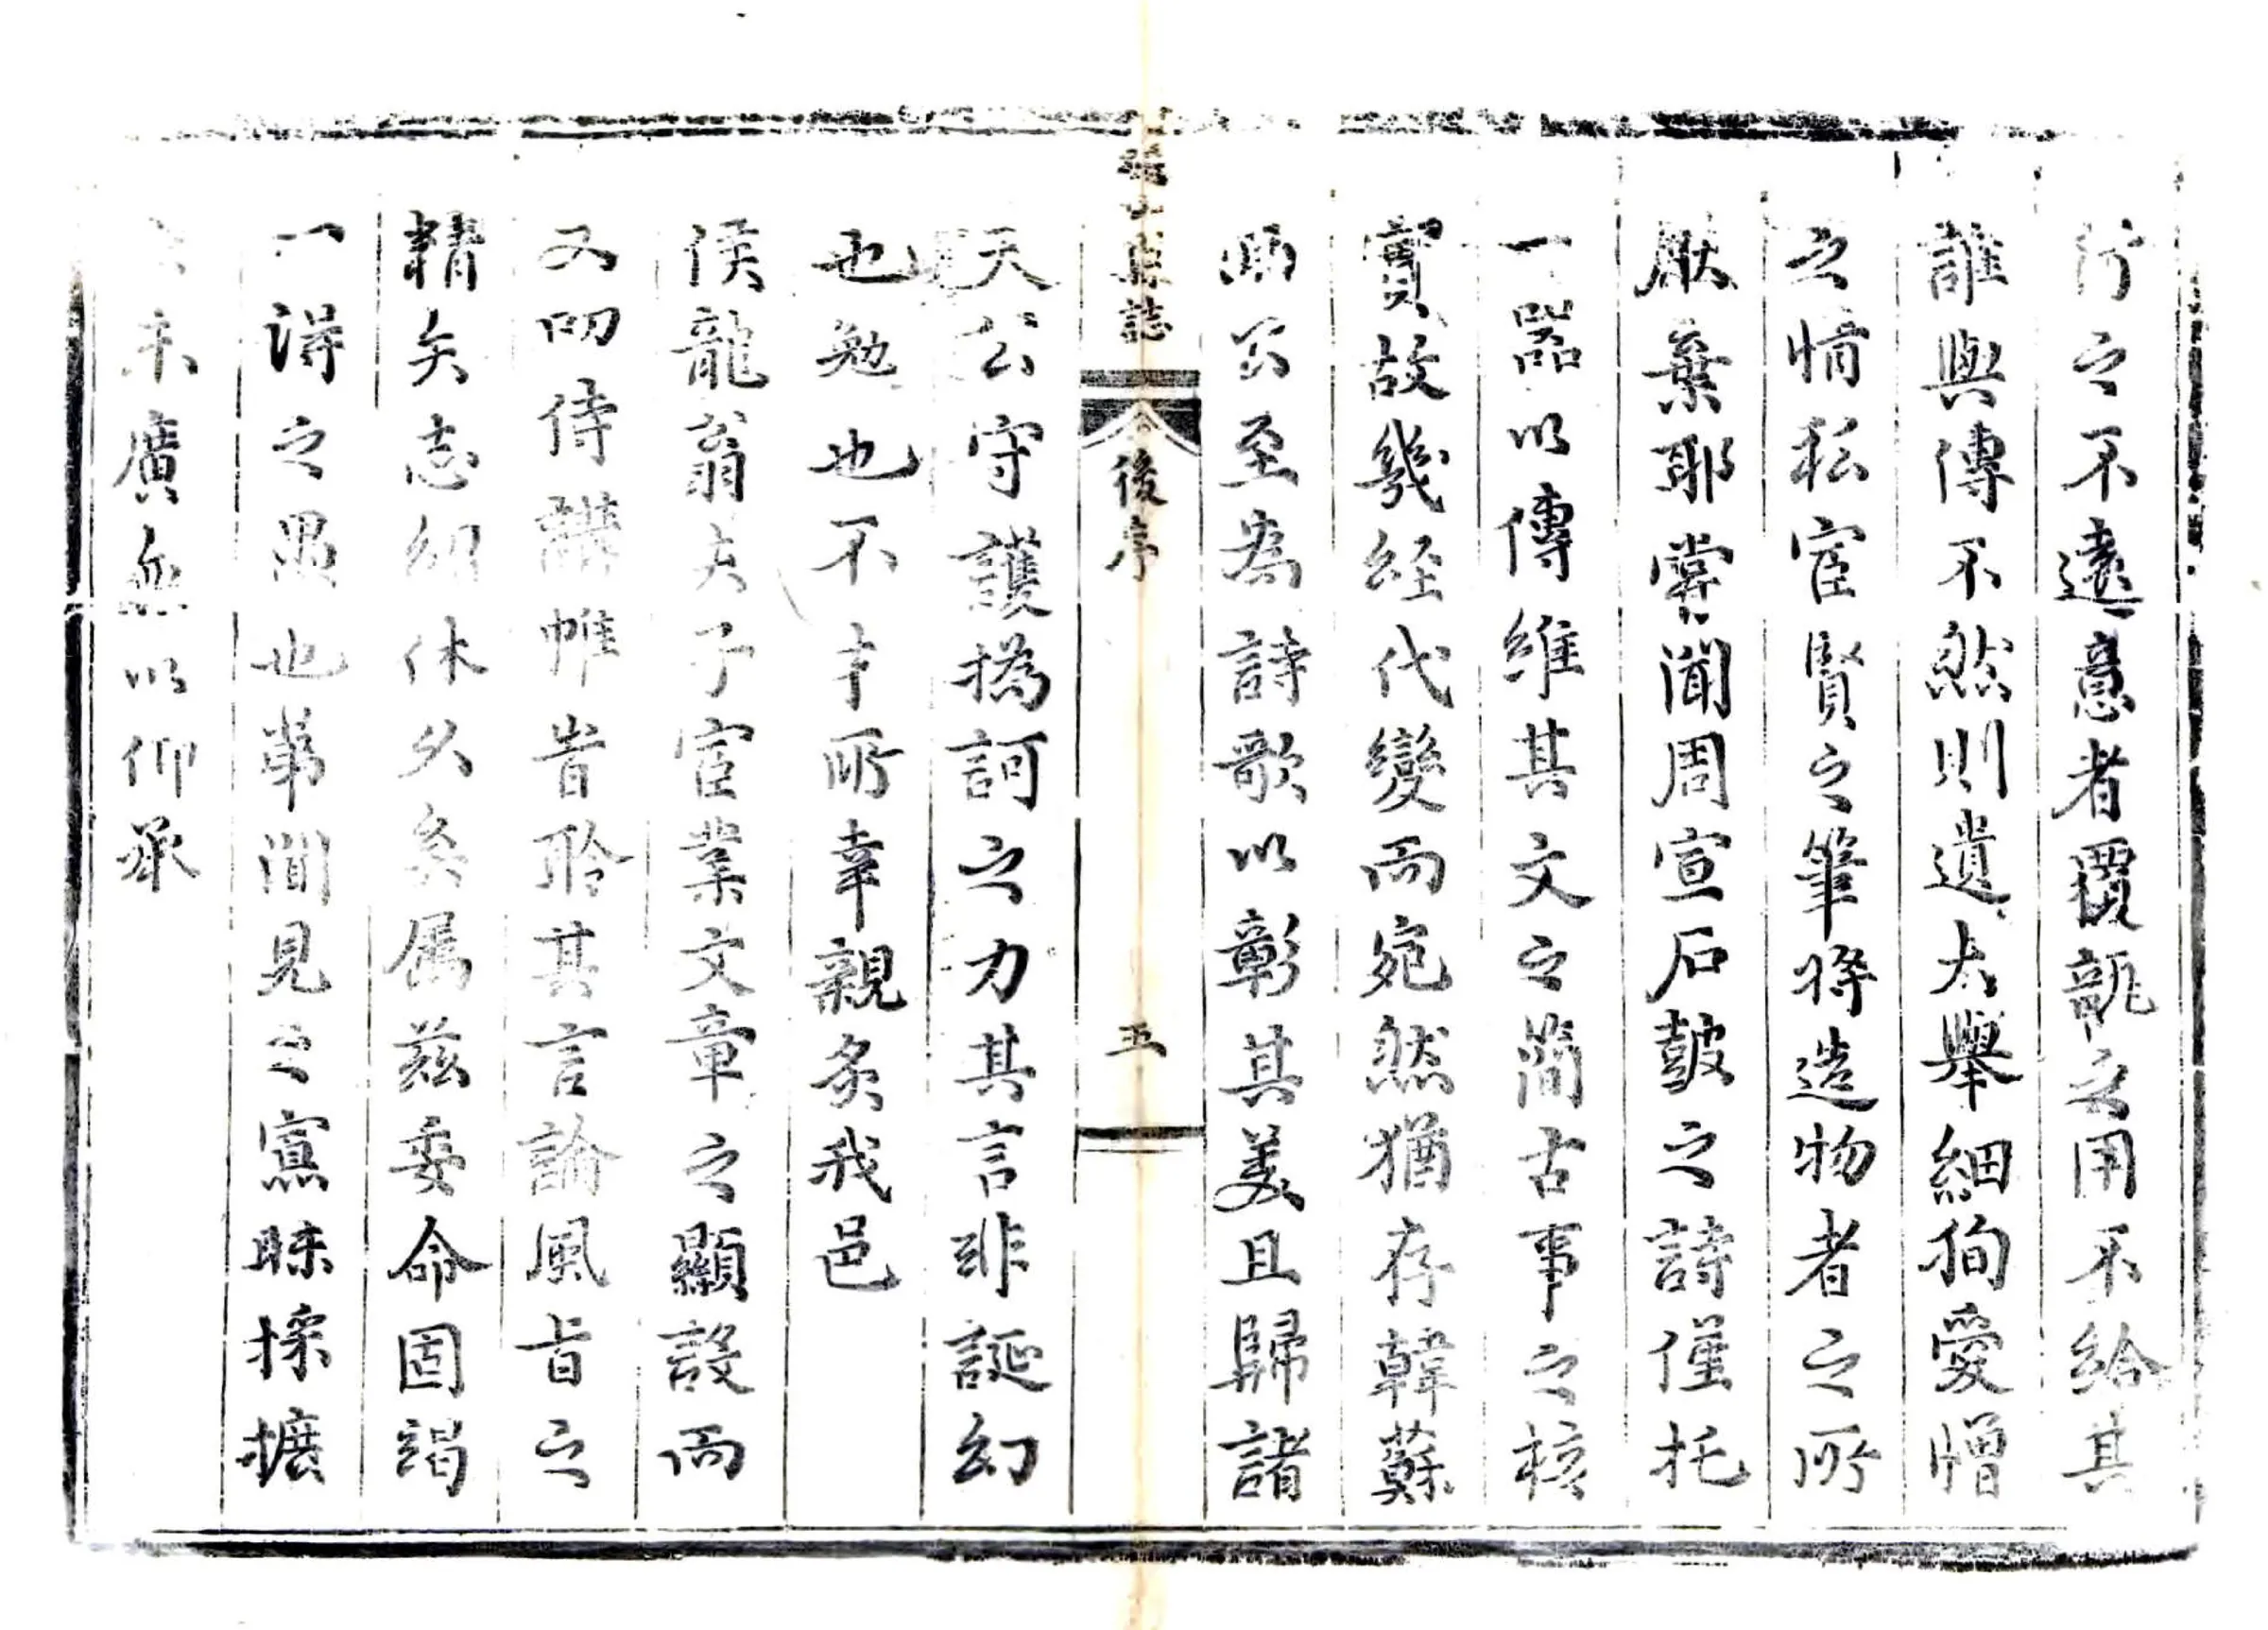 行之不遠意者覆瓿之用不給其
誰與傳不然則遺大舉細狥愛憎
之情私宦賢之筆將造物者之所
厭棄耶嘗聞周宣石皷之詩僅托
一器以傳維其文之簡古事之核
實故幾經代變而宛然猶存韓蘇
兩公至為詩歌以彰其美且歸諸
山縣誌
後序
五
天公守護撝訶之力其言非誕幻
也勉也不才所幸親炙我邑
侯龍翁夫子宦業文章之顯設而
又叨侍講帷旹聆其言論風旨之
精矣志紉休久矣属兹委命固竭
一得之愚也苐聞見之寡昧採摭
未廣無以仰承